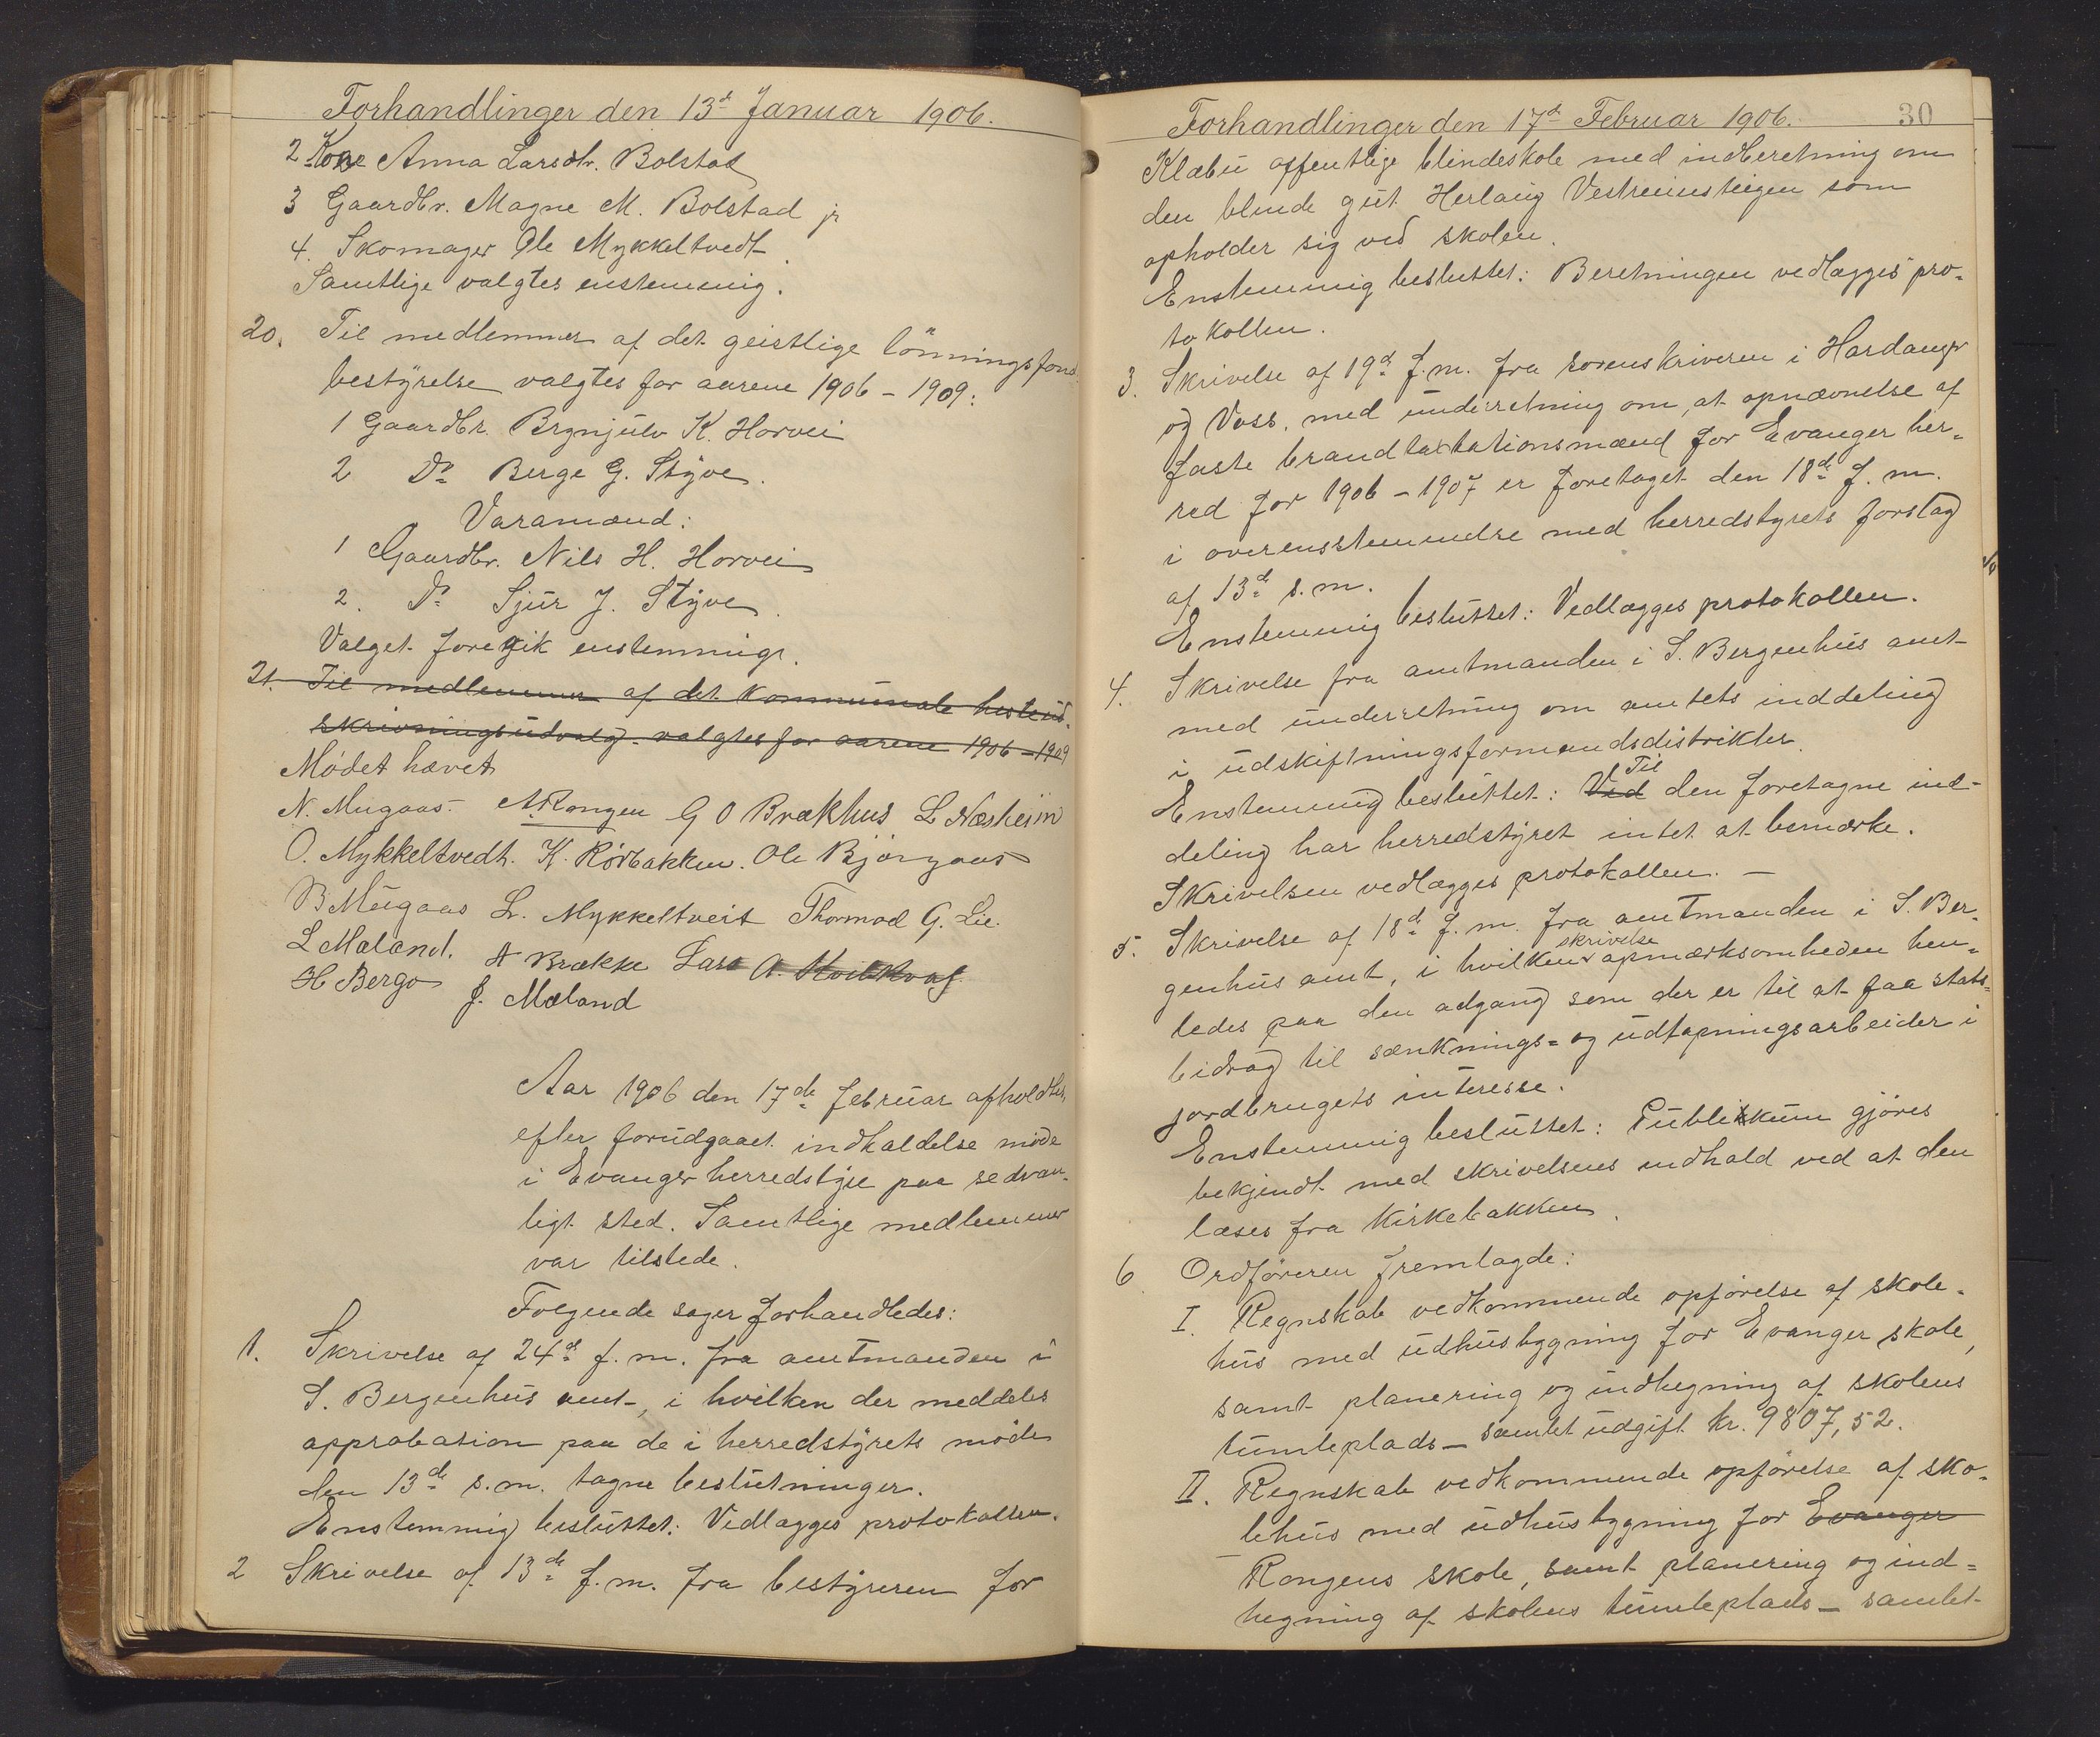 Forhandlinger den 13de Januar 1906.
2 Kone Anna Larsdtr. Bolstad
3 Gaardbr. Magne M. Bolstad jr
4. Skomager Ole Mykkeltvedt.
Samtlige valgtes enstemmig.
20. Til medlemmer af det geistlige lönningsfond-
bestyrelse valgtes for aarene 1906 - 1909:
1 Gaardbr. Brynjulv K. Horvei
2 Do Berge G. Styve.
Varamænd:
1 Gaardbr. Nils H. Horvei
2. Do Sjur J. Styve.
Valget foregik enstemmigt.
21. Til medlemmer af det kommunale hesteud-
skrivningsudvalg valgtes for aarene 1906 - 1909
Mødet hævet
N. Mugaas. A Rongen G O Brækhus L Næsheim
O. Mykkeltvedt. K. Rørbakken. Ole Bjørgaas
B Mugaas L. Mykkeltveit Thormod G. Lie.
L Mæland. A Brække Lars A.
H Bergo J. Mæland
Aar 1906 den 17de februar afholdtes
efter forudgaaet indkaldelse möde
i Evanger herredstyre paa sedvan-
ligt sted. Samtlige medlemmer
var tilstede.
Følgende sager forhandledes:
1. Skrivelse af 24de f. m. fra amtmanden i
S. Bergenhus amt, i hvilken der meddeles
approbation paa de i herredstyrets möde
den 13de s. m. tagne beslutninger.
Enstemmig besluttet: Vedlægges protokollen.
2 Skrivelse af 13de f. m. fra bestyreren for
Forhandlinger den 17de Februar 1906. 30
Klæbu offentlige blindeskole med indberetning om
den blinde gut Herlaug som
opholder sig ved skolen.
Enstemmig besluttet: Beretningen vedlægges pro-
tokollen.
3. Skrivelse af 19de f. m. fra sorenskriveren i Hardanger
og Voss, med underretning om, at opnævnelse af
faste brandtaxtationsmænd for Evanger her-
red for 1906 - 1907 er foretaget den 18de f. m.
i overensstemmelse med herredstyrets forslag
af 13de s. m.
Enstemmig besluttet: Vedlægges protokollen.
4. Skrivelse fra amtmanden i S. Bergenhus amt
med underretning om amtets inddeling
i udskiftningsformandsdistrikter.
Enstemmig besluttet: Ved Til den foretagne ind-
deling har herredstyret intet at bemærke.
Skrivelsen vedlægges protokollen. —
5. Skrivelse af 18de f. m. fra amtmanden i S. Ber-
genhus amt, i hvilken skrivelse opmærksomheden hen-
ledes paa den adgang som der er til at faa stats-
bidrag til sænknings- og udtapningsarbeider i
jordbrugets interesse.
Enstemmig besluttet: Publikum gjöres
bekjendt med skrivelsens indhold ved at den
læses fra kirkebakken.
6 Ordföreren fremlagde:
I. Regnskab vedkommende opförelse af skole-
hus med udhusbygning for Evanger skole,
samt planering og indhegning af skolens
tumleplads — samlet udgift kr. 9807,52.
II. Regnskab vedkommende opförelse af sko-
lehus med udhusbygning for Evanger
Rongens skole, samt planering og ind-
hegning af skolens tumleplads — samlet